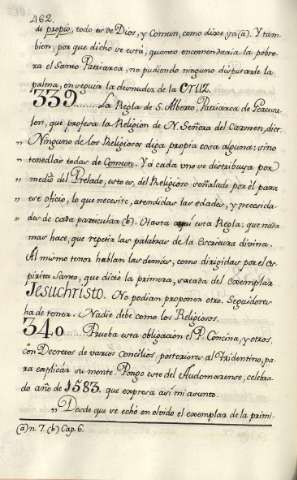 462.
de propio, todo es de Dios, y Comun, como dixe ya (a). Y tam-
bien, por que dicho se està, quanto encomendaria la pobre-
za el Santo Patriarca, no pudiendo ninguno disputarle la
palma, en seguir la desnudez de la CRUZ.
339......... La Regla de S. Alberto, Patriarca de Jerusa-
len, que profesa la Religion de N. Señora del Carmen, dice:
,, Ninguno de los Religiosos diga propia cosa alguna: sino
,, tenedlas todas de Comun. Y a cada uno se distribuya por
,, medio del Prelado, esto es, del Religioso señalado por èl para
,, ese oficio, lo que necesite, atendidas las edades, y necesida-
,, des de cada particular (b). Hasta aqui esta Regla: que no hà
mas hace, que repetir las palabras de la Escritura divina.
Al mismo tenor hablan las demàs, como dirigidas por el Es-
piritu Santo, que dictò la primera, sacada del exemplar
Jesuchristo. No podian proponer otro. Seguidores
hà de tener. Nadie debe como los Religiosos.
340......... Prueba esta obligacion el P. Concina, y otros,
con Decretos de varios Concilios, posteriores al Tridentino, pa-
ra explicar su mente. Pongo este del Audomarense, celebra-
do año de 1583. que expresa asi mi asunto.
,, Desde que se echò en olvido el exemplar de la primi-
(a) n. 7. (b) Cap. 6.